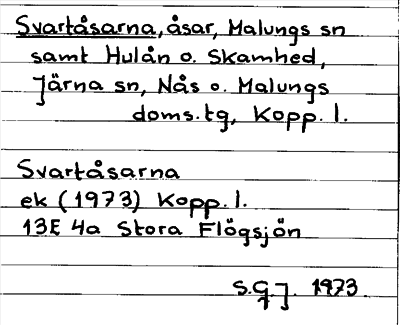 Svartåsarna, åsar, Malungs sn
samt Hulån o. Skamhed,
Järna sn, Nås o. Malungs
doms.tg, Kopp. l.
Svartåsarna
ek (1973) Kopp. l.
13E 4a Stora Flögsjön
S.G.J. 1973